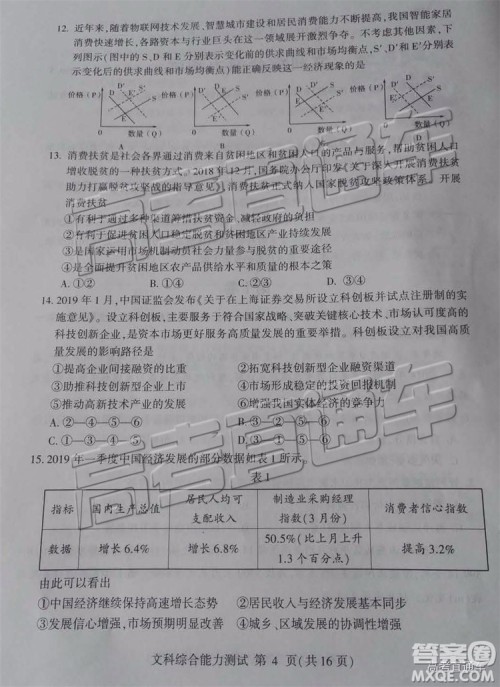 12. 近年来,随着物联网技术发展、智慧城市建设和居民消费能力不断提高,我国智能家居
消费快速增长,各路资本与行业巨头在这一领域展开激烈竞争。不考虑其他因素,下
列图示(图中的S、D和E分别表示变化前的供求曲线和市场均衡点,S′、D′和E′分别表
示变化后的供求曲线和市场均衡点)能正确反映这一经济现象的是
价格(P) 价格(P) 价格(P) 价格(P)
数量(Q) 数量(Q) 数量(Q) 数量(Q)
A B C D
13. 消费扶贫是社会各界通过消费来自贫困地区和贫困人口的产品与服务,帮助贫困人口
增收脱贫的一种扶贫方式。2018年12月,国务院办公厅印发《关于深入开展消费扶贫
助力打赢脱贫攻坚战的指导意见》,消费扶贫正式纳入国家脱贫攻坚政策体系。开展
消费扶贫
①有利于通过多种渠道筹措扶贫资金,减轻政府的负担
②有利于促进贫困人口稳定脱贫和贫困地区产业持续发展
③是国家运用市场机制动员社会力量参与脱贫的重要途径
④是全面提升贫困地区农产品供给水平和质量的根本之策
A. ①② B. ①④ C. ②③ D. ③④
14. 2019年1月,中国证监会发布《关于在上海证券交易所设立科创板并试点注册制的实
施意见》。设立科创板,主要服务于符合国家战略、突破关键核心技术、市场认可度高的
科技创新企业,是资本市场更好服务高质量发展的重要举措。科创板设立对我国高质
量发展的影响路径是
①提高企业间接融资的比重 ②拓宽科技创新型企业融资渠道
③助推科技创新型企业上市 ④市场形成稳定的投资回报机制
⑤推动高新技术产业的发展 ⑥增强我国实体经济的竞争力
C. ③—①—⑤—④ D. ③—②—⑤—⑥
15. 2019年一季度中国经济发展的部分数据如表1所示。
表1
指标 国内生产总值 居民人均可支配收入 制造业采购经理指数(3月份) 消费者信心指数
数据 增长6.4% 增长6.8% 50.5%(比上月上升1.3个百分点) 提高3.2%
由此可以看出
①中国经济继续保持高速增长态势 ②居民收入与经济发展的协同性增强
③发展信心增强,市场预期明显改善 ④城乡、区域发展的协调性增强
文科综合能力测试 第 4 页(共16页)
高考直通车
答案圈
MXQE.COM